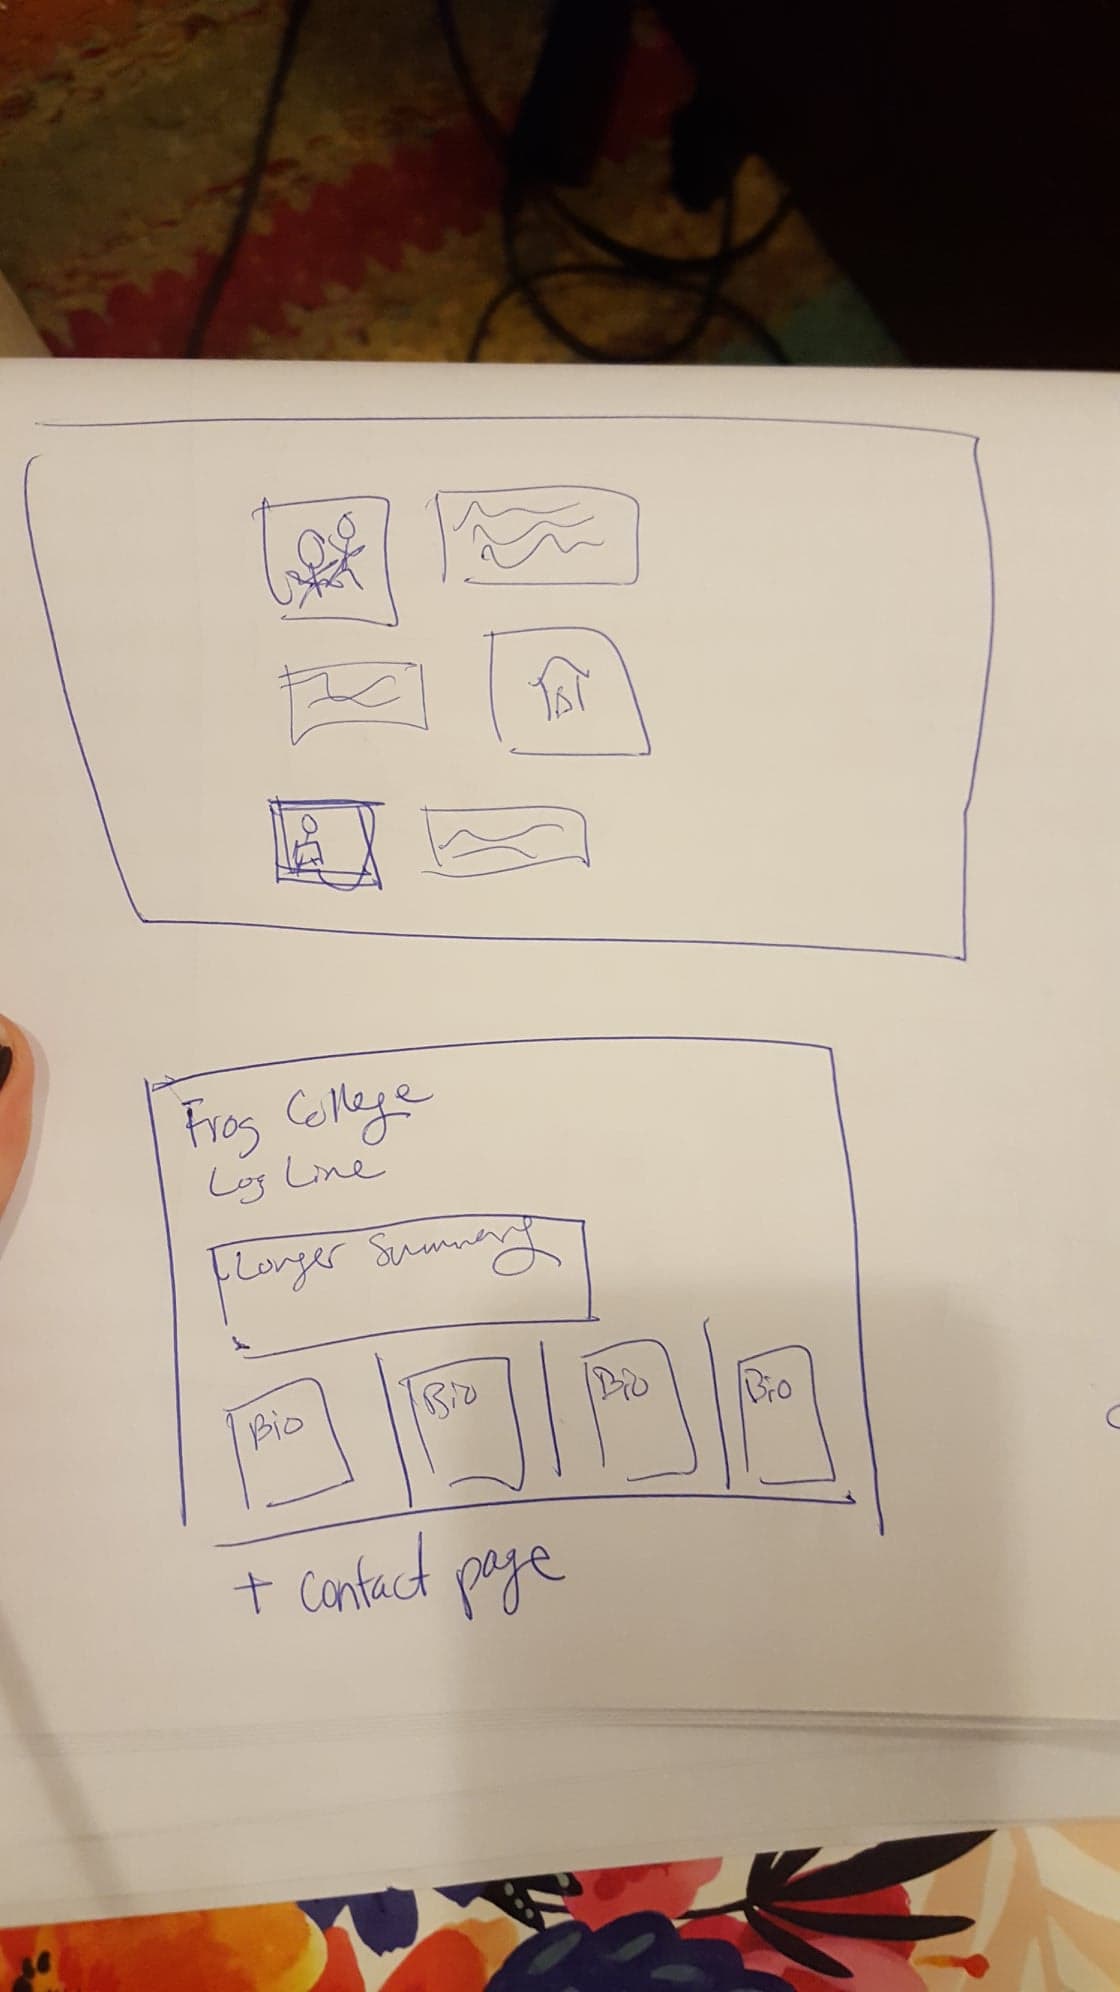 Frog College
Log Line
Longer Summary
Bio
Bio
Bio
Bio
+ contact page